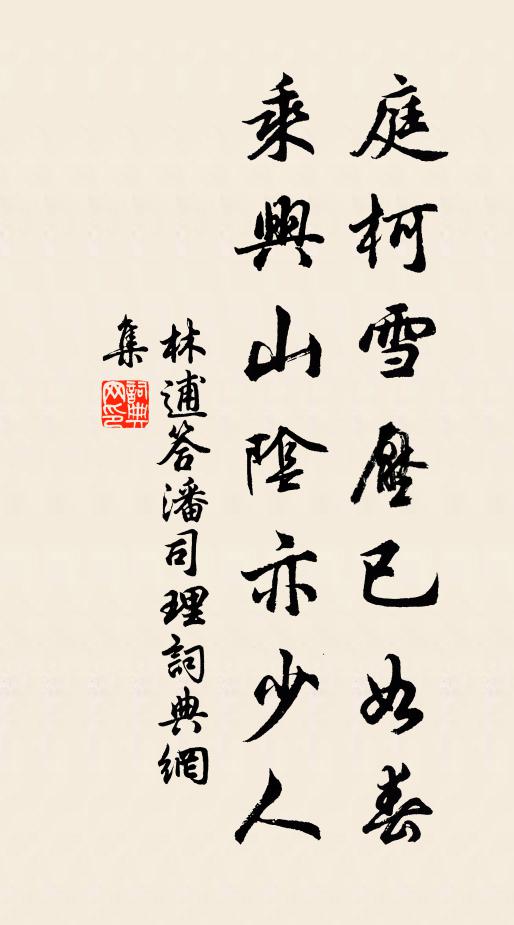 庭柯雪壓已如春
乘興山陰亦少人
林逋答潘司理詞典網
集
詞典
网印